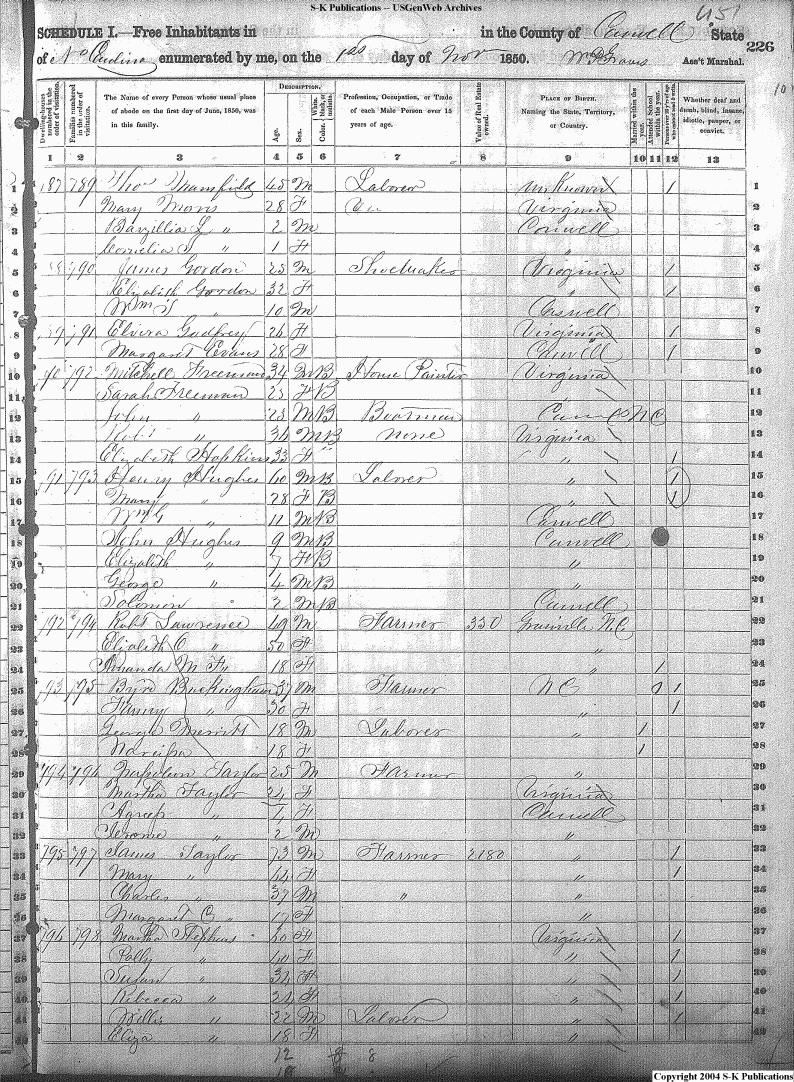 S-K Publications -- USGenWeb Archives
451
SCHEDULE I.—Free Inhabitants in in the County of Caswell State
226
of No Carolina enumerated by me, on the 1st day of Nov 1850. Ass't Marshal.
Dwelling-houses numbered in the order of visitation.
Families numbered in the order of visitation.
The Name of every Person whose usual place of abode on the first day of June, 1850, was in this family.
DESCRIPTION.
Age.
Sex.
White, Color, black, or mulatto.
Profession, Occupation, or Trade of each Male Person over 15 years of age.
Value of Real Estate owned.
PLACE OF BIRTH. Naming the State, Territory, or Country.
Married within the year.
Attended School within the year.
Persons over 20 y'rs of age who cannot read & write.
Whether deaf and dumb, blind, insane, idiotic, pauper, or convict.
1 2 3 4 5 6 7 8 9 10 11 12 13
1 787 789 Thos Mansfield 45 M Laborer unKnown / 1
2 Mary Morris 28 F Virginia 2
3 Barzillia L " 2 M Caswell 3
4 Cornelia S " 1 F " 4
5 790 James Gordon 25 M Shoemaker Virginia / 5
6 Elizabeth Gordon 32 F " / 6
7 Wm S " 10 M Caswell 7
8 791 Elvira Godfrey 26 F Virginia / 8
9 Margaret Evans 28 F Caswell / 9
10 90 792 Mitchell Freeman 34 M B House Painter Virginia 10
11 Sarah Freeman 25 F B " 11
12 John " 23 M B Boatman Caswell NC 12
13 Robt " 36 M B none Virginia 13
14 Elizabeth Hopkins 33 F " " / 14
15 91 793 Henry Hughes 40 M B Laborer " / 15
16 Mary " 28 F B " / 16
17 Wm G " 11 M B Caswell 17
18 John Hughes 9 M B Caswell 18
19 Elizabeth " 7 F B " 19
20 George " 4 M B " 20
21 Solomon " 2 M B Caswell 21
22 792 794 Robt Lawrence 49 M Farmer 330 Granville N.C. 22
23 Elizabeth C " 50 F " 23
24 Amanda M F " 18 F " / 24
25 793 795 Byrd Buckingham 37 M Farmer N C / / 25
26 Fanny " 30 F " / 26
27 George Merritt 18 M Laborer " / 27
28 Narcissa 18 F / 28
29 794 796 Napoleon Taylor 25 M Farmer " 29
30 Martha Taylor 24 F Virginia 30
31 Agness " 4 F Caswell 31
32 Jerome " 2 M " 32
33 795 797 James Taylor 73 M Farmer 2180 " / 33
34 Mary " 64 F " / 34
35 Charles " 37 M " " 35
36 Margaret C " 17 F " 36
37 796 798 Martha Stephens 60 F Virginia / 37
38 Polly " 40 F " / 38
39 Susan " 34 F " / 39
40 Rebecca " 24 F " / 40
41 Willis " 22 M Laborer " / 41
42 Eliza " 18 F " 42
12 8
Copyright 2004 S-K Publications